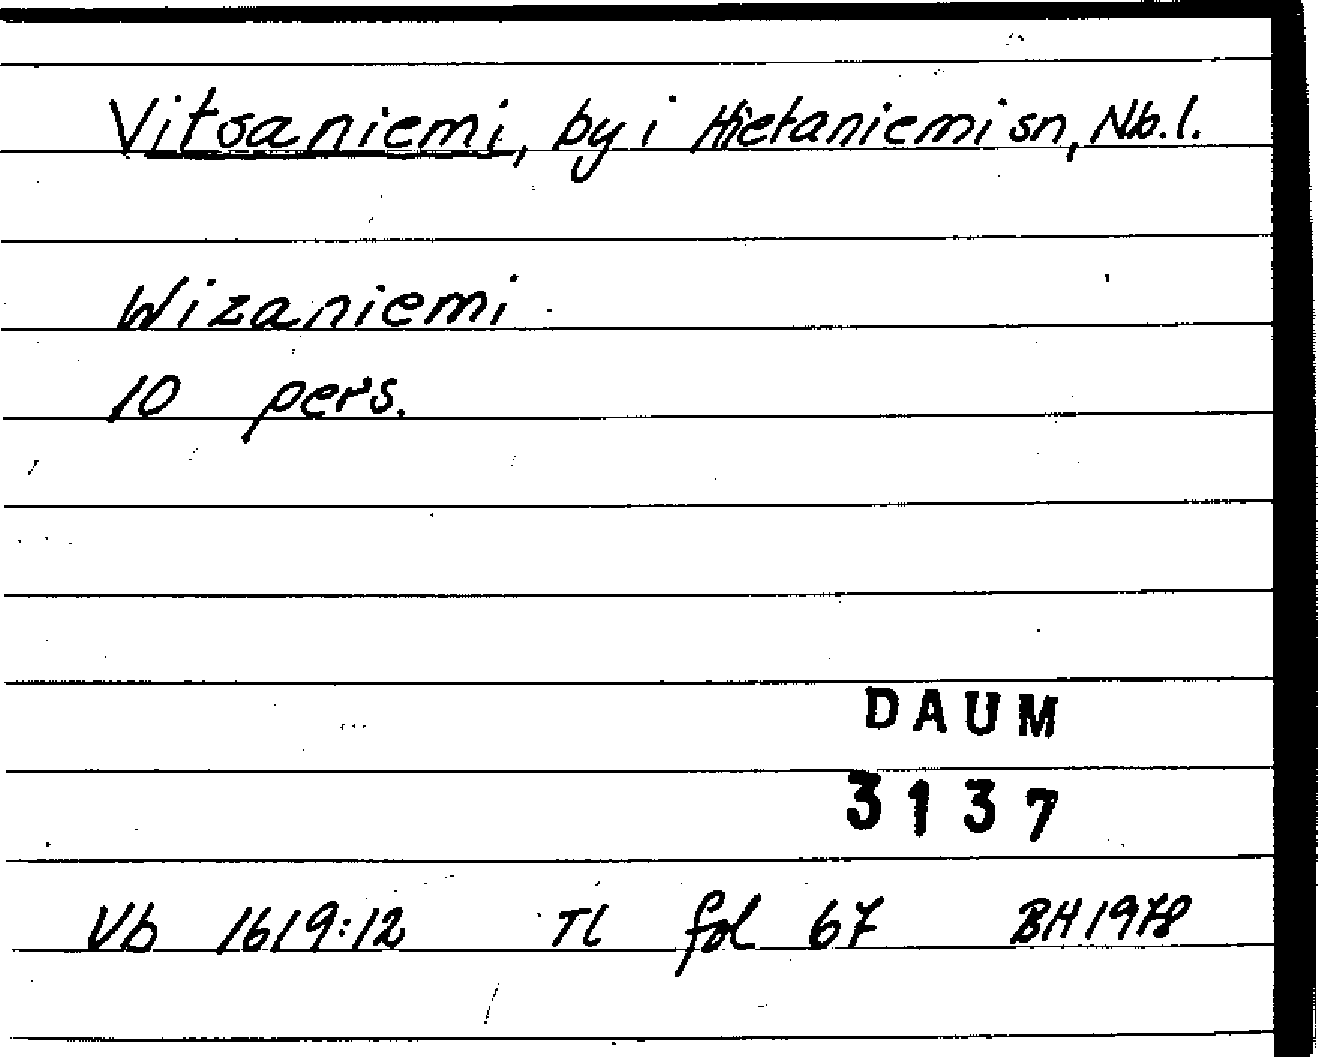 Vitsaniemi, by i Hietaniemi sn, Nb.l.
Wizaniemi
10 pers.
DAUM
3137
Vb 1619:12 TL fol 67 BH 1978